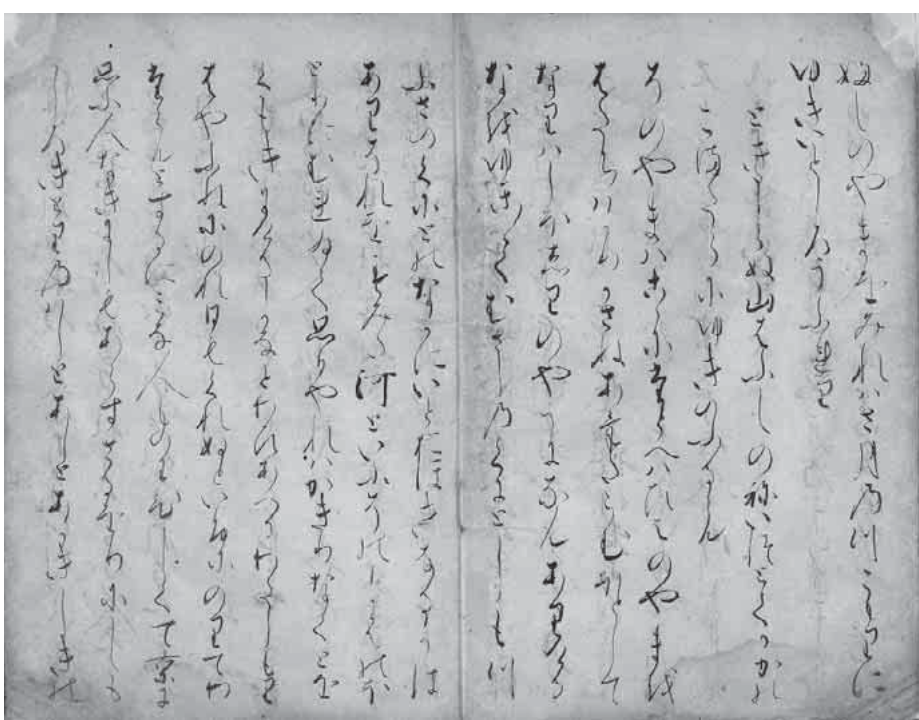 ふしのやまをみれはさ月のつこもりに
ゆきいとしろうふれり
ときしらぬ山はふしのねいつとてかかの
こまたらにゆきのふるらん
そのやまはこゝにたとへはひえのやまを
はたちはかりかさねあけたらむほとして
なりはしほしりのやうになんありける
なをゆき〱てむさしのくにとしもつ
ふさのくにとのなかにいとおほきなるかは
ありそれをすみた河といふそのかはのほ
とりにむれゐて思やれはかきりなくとを
くもきにけるかなとわひあへるにわたしもり
はやふねにのれ日もくれぬといふにのりてわ
たらんとするにみな人ものわひしくて京に
思ふ人なきにしもあらすさるをりにしも
しろきとりのはしとあしとあかきしきの